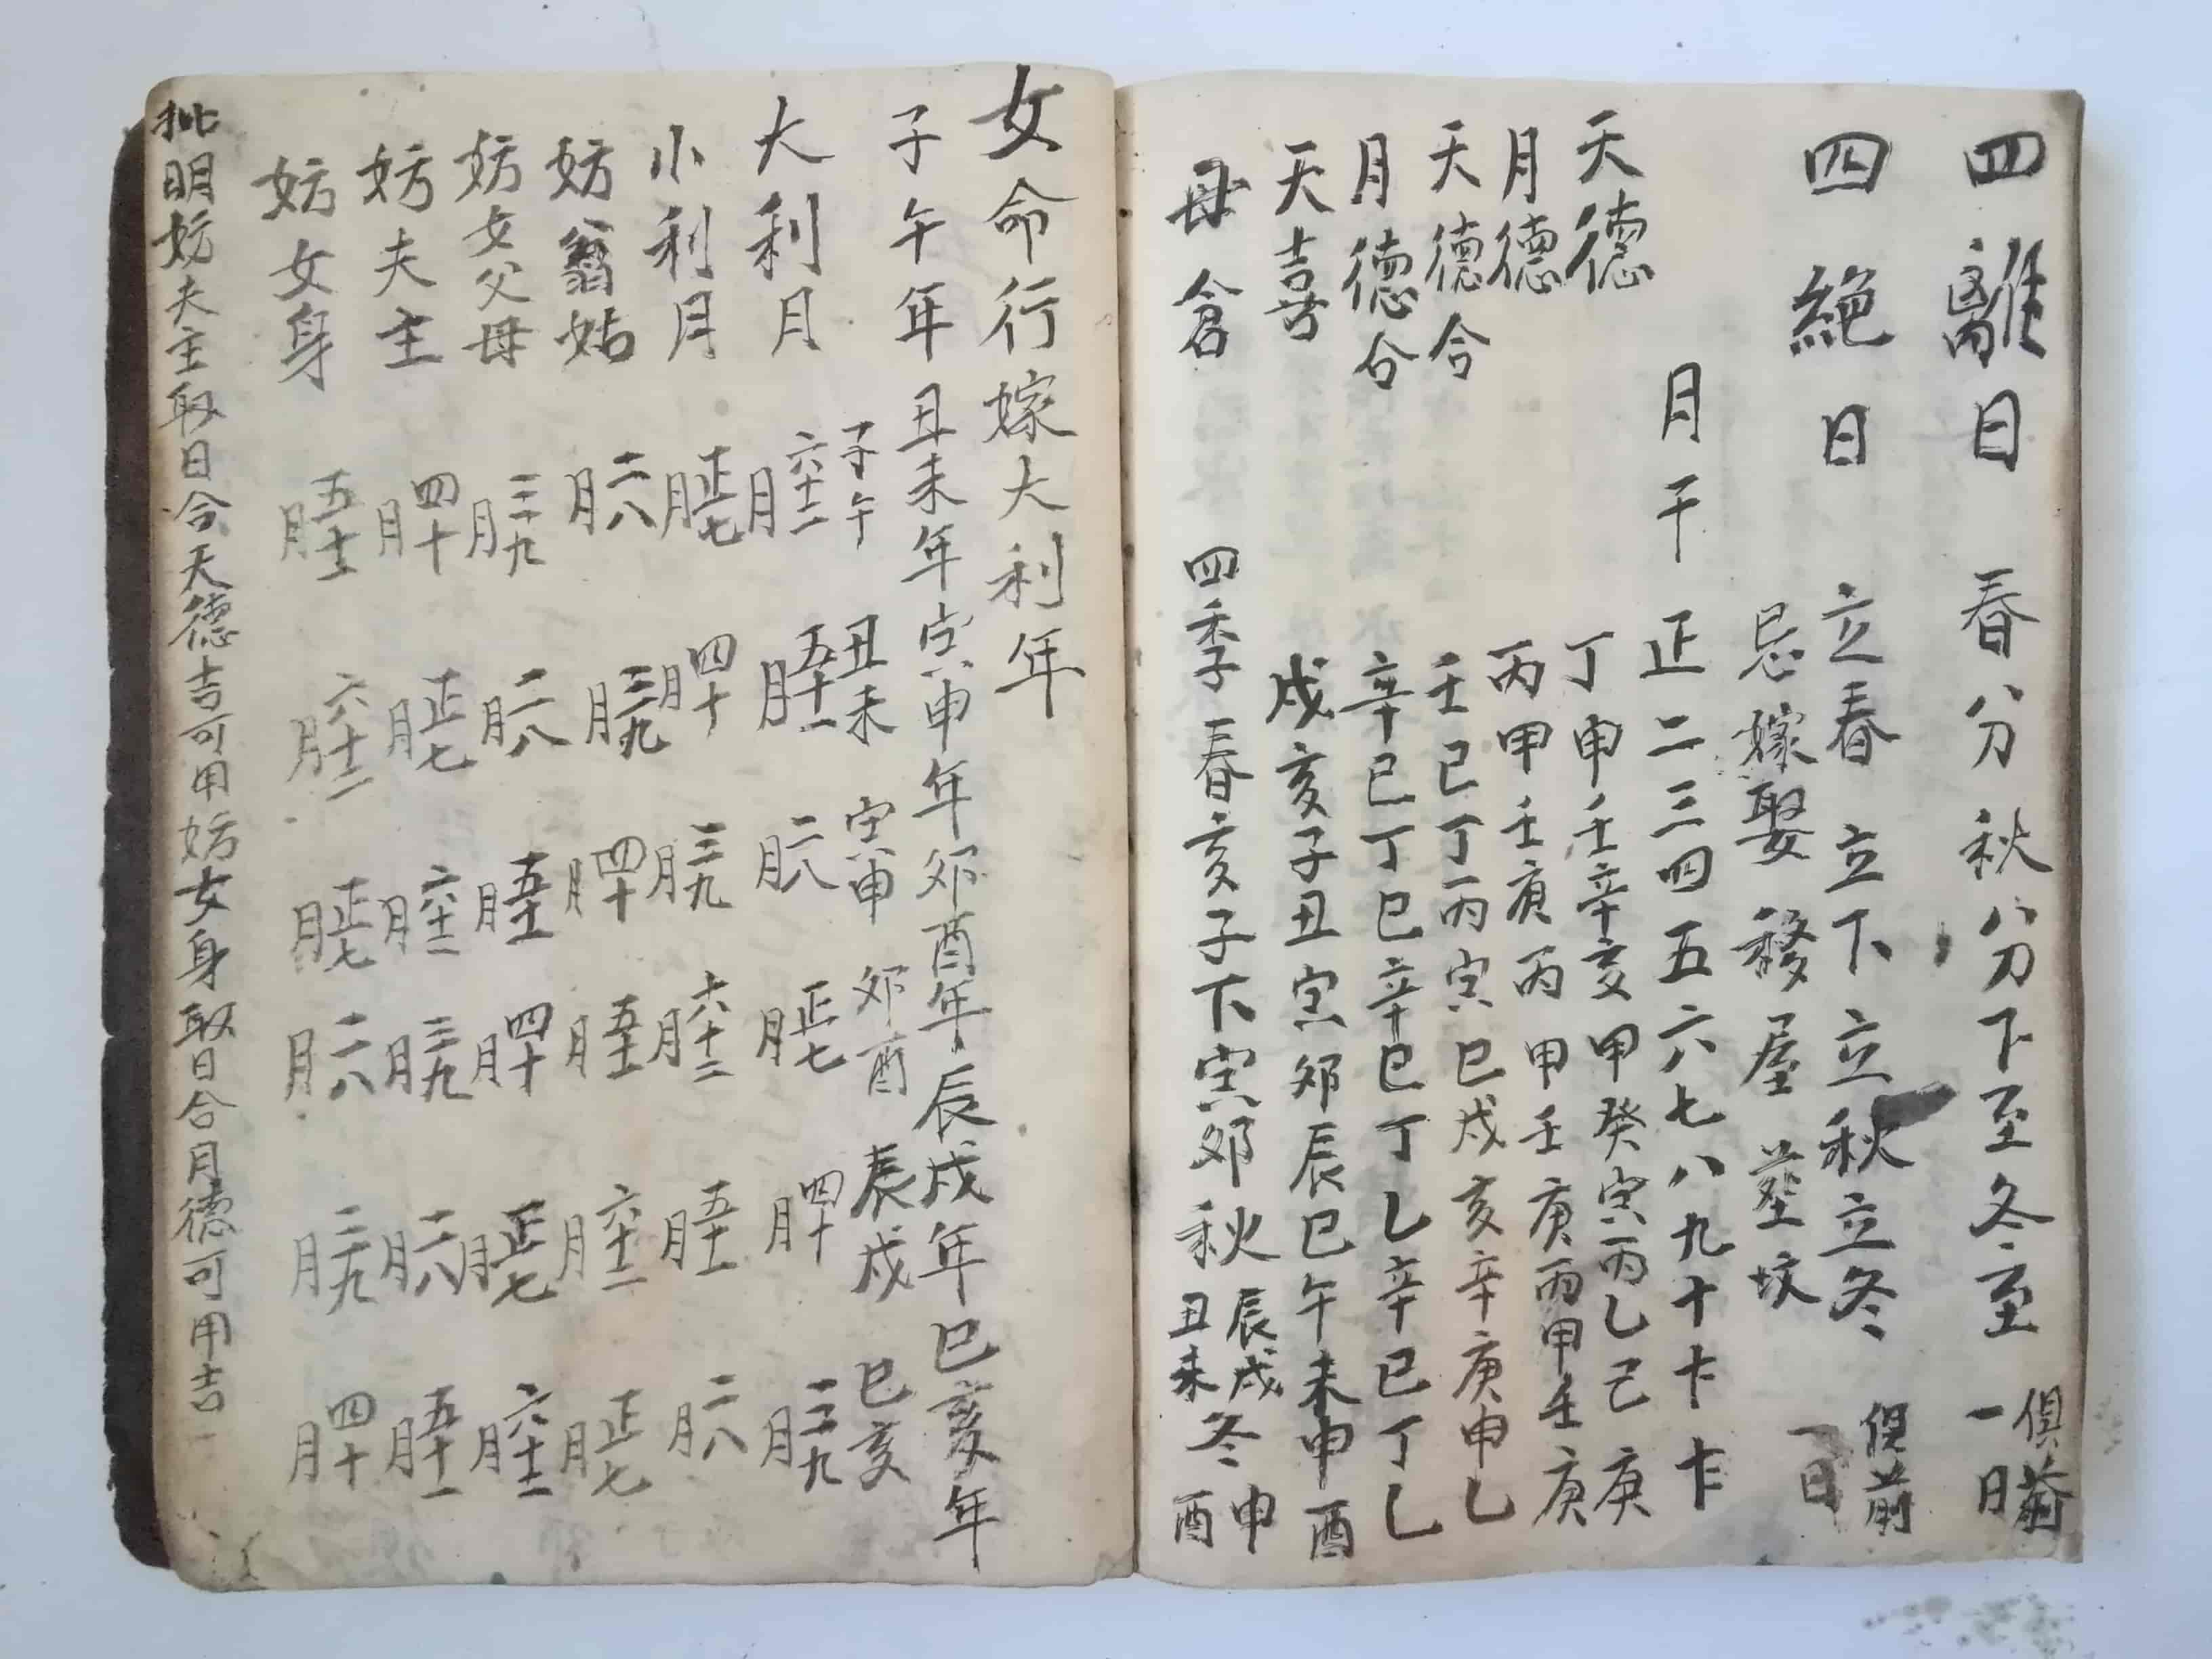 四離日 春分秋分下至冬至 俱前一日
四絕日 立春立下立秋立冬 俱前一日
忌嫁娶移屋塟坟
月干 正二三四五六七八九十𠦃𠦃
天德 丁申壬辛亥甲癸寅丙乙己庚
月德 丙甲壬庚丙甲壬庚丙甲壬庚
天德合 壬巳丁丙寅巳戍亥辛庚申乙
月德合 辛巳丁巳辛巳丁乙辛巳丁乙
天喜 戍亥子丑寅卯辰巳午未申酉
母倉 四季春亥子下寅卯秋辰戍丑未冬申酉
女命行嫁大利年
子午年丑未年寅申年卯酉年辰戍年巳亥年
子午 丑未 寅申 卯酉 辰戍 巳亥
大利月 六十二月 五十一月 二八月 正七月 四十月 三九月
小利月 正七月 四十月 三九月 六十二月 五十一月 二八月
妨翁姑 二八月 三九月 四十月 五十一月 六十二月 正七月
妨女父母 三九月 二八月 五十一月 四十月 正七月 六十二月
妨夫主 四十月 正七月 六十二月 三九月 二八月 五十一月
妨女身 五十一月 六十二月 正七月 二八月 三九月 四十月
批明妨夫主取日合天德吉可用妨女身取日合月德可用吉